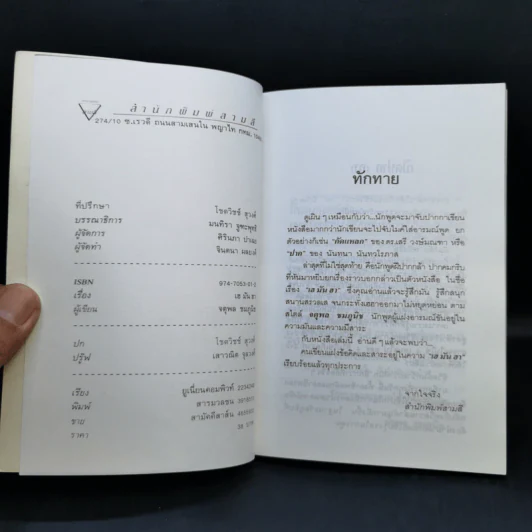 สำนักพิมพ์สามสี
274/10 ซ.เรวดี ถนนสามเสนใน พญาไท กทม.
ที่ปรึกษา โชตวิชช์ สุวงศ์
บรรณาธิการ มนทิรา จูฑะพุทธิ
ผู้จัดการ ศิรินภา
ผู้จัดทำ จินตนา
ISBN 974-7053-01-2
เรื่อง เฮ มัน ฮา
ผู้เขียน จตุพล ชมภูนิช
ปก โชตวิชช์ สุวงศ์
ปรู๊ฟ เสาวณีต
เรียง ยูเนี่ยนคอมพิวท์
พิมพ์ สารมวลชน
ขาย สามัคคีสาส์น
ราคา
ทักทาย
ดูเผิน ๆ เหมือนกับว่า...นักพูดจะมาจับปากกาเขียน
หนังสือมากกว่านักเขียนจะไปจับไมค์ใส่อารมณ์พูด ยก
ตัวอย่างก็เช่น "คัดแพลก" ของ ดร.เสรี วงษ์มณฑา หรือ
"ปาด" ของ นันทนา นันทวโรภาส
ล่าสุดที่ไม่ใช่สุดท้าย คือนักพูดฝีปากกล้า ปากคมกริบ
ที่หันมาหยิบยกเรื่องราวบอกกล่าวเป็นตัวหนังสือ ในชื่อ
เรื่อง "เฮ มัน ฮา" ซึ่งคุณอ่านแล้วจะรู้สึกมัน รู้สึกสนุก
สนานสรวลเส จนกระทั่งเฮฮาออกมาไม่หยุดหย่อน ตาม
สไตล์ จตุพล ชมภูนิช นักพูดผู้แฝงอารมณ์ขันอยู่ใน
ความมันและความมีสาระ
กับหนังสือเล่มนี้ อ่านดี ๆ แล้วจะพบว่า...
คนเขียนแฝงข้อคิดและสาระอยู่ในความ "เฮ มัน ฮา"
เรียบร้อยแล้วทุกประการ
จากใจจริง
สำนักพิมพ์สามสี